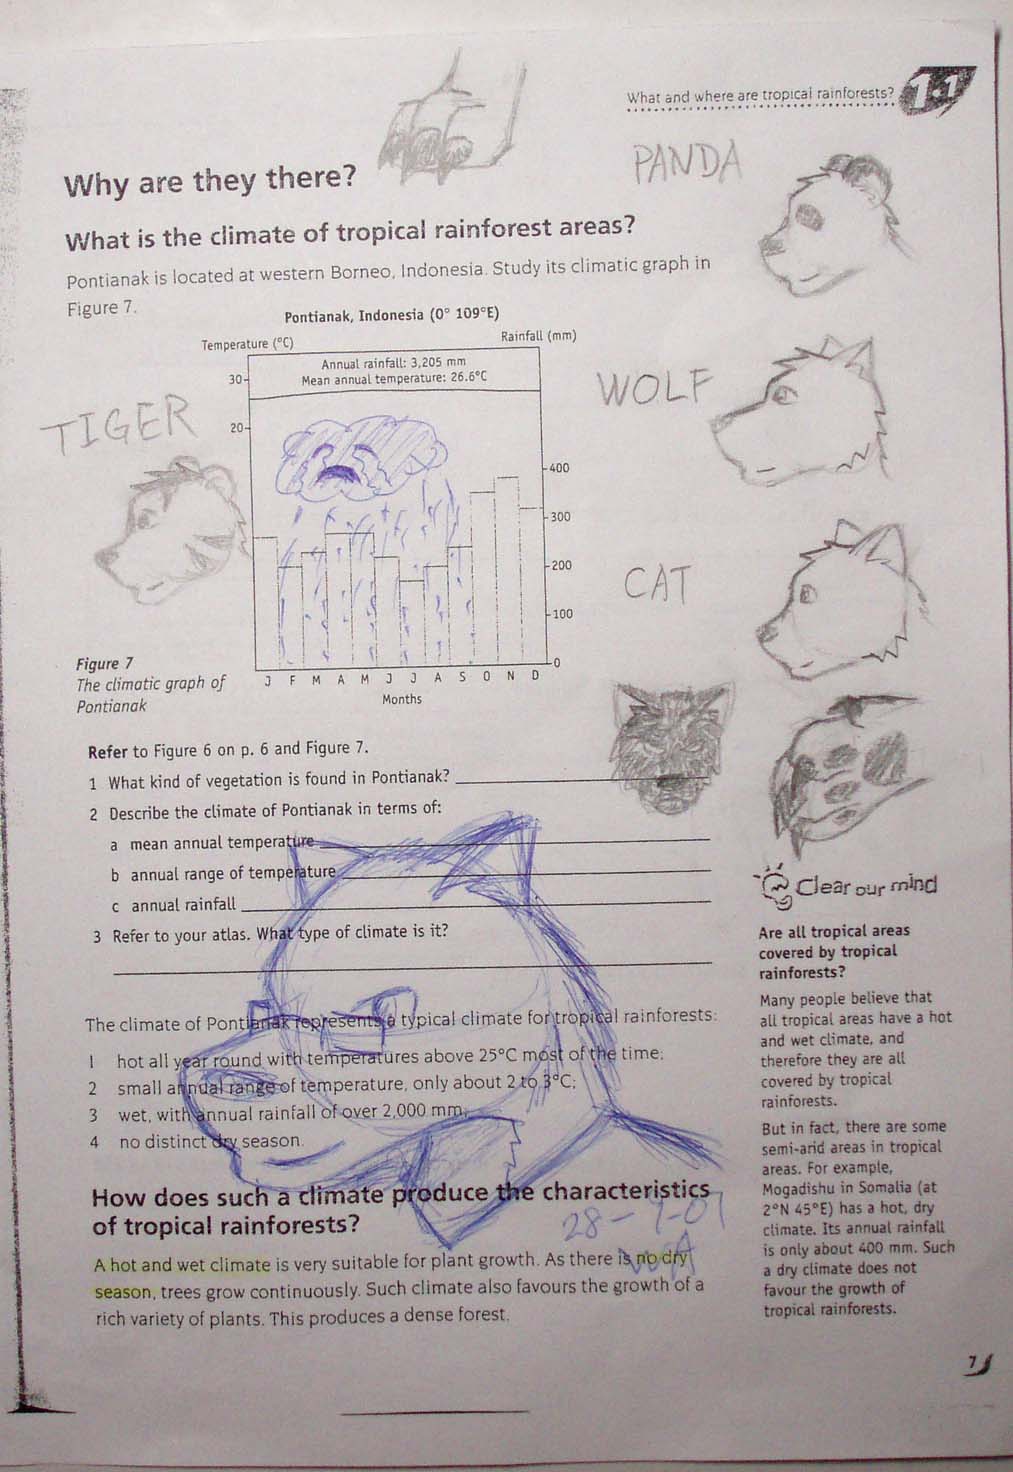 What and where are tropical rainforests? 1.1
PANDA
Why are they there?
What is the climate of tropical rainforest areas?
Pontianak is located at western Borneo, Indonesia. Study its climatic graph in
Figure 7.
Pontianak, Indonesia (0° 109°E)
Temperature (°C) Rainfall (mm)
Annual rainfall: 3,205 mm
Mean annual temperature: 26.6°C
30
20
400
300
200
100
0
J F M A M J J A S O N D
Months
TIGER
WOLF
CAT
Figure 7
The climatic graph of
Pontianak
Refer to Figure 6 on p. 6 and Figure 7.
1 What kind of vegetation is found in Pontianak?
2 Describe the climate of Pontianak in terms of:
a mean annual temperature
b annual range of temperature
c annual rainfall
3 Refer to your atlas. What type of climate is it?
The climate of Pontianak represents a typical climate for tropical rainforests:
1 hot all year round with temperatures above 25°C most of the time;
2 small annual range of temperature, only about 2 to 3°C;
3 wet, with annual rainfall of over 2,000 mm;
4 no distinct dry season.
How does such a climate produce the characteristics
of tropical rainforests?
28-9-01
A hot and wet climate is very suitable for plant growth. As there is no dry
season, trees grow continuously. Such climate also favours the growth of a
rich variety of plants. This produces a dense forest.
Clear our mind
Are all tropical areas
covered by tropical
rainforests?
Many people believe that
all tropical areas have a hot
and wet climate, and
therefore they are all
covered by tropical
rainforests.
But in fact, there are some
semi-arid areas in tropical
areas. For example,
Mogadishu in Somalia (at
2°N 45°E) has a hot, dry
climate. Its annual rainfall
is only about 400 mm. Such
a dry climate does not
favour the growth of
tropical rainforests.
7